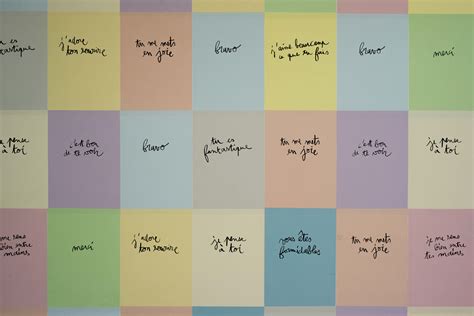 es
ntastique
j'adore
ton sourire
tu me mets
en joie
bravo
j'aime beaucoup
ce que tu fais
bravo
merci
pense
à toi
c'est bon
de te voir
bravo
tu es
fantastique
tu me mets
en joie
c'est bon
de te voir
je pense
à toi
me sens
bien entre
mains
merci
j'adore
ton sourire
je pense
à toi
vous êtes
formidables
tu me mets
en joie
je me sens
bien entre
tes mains